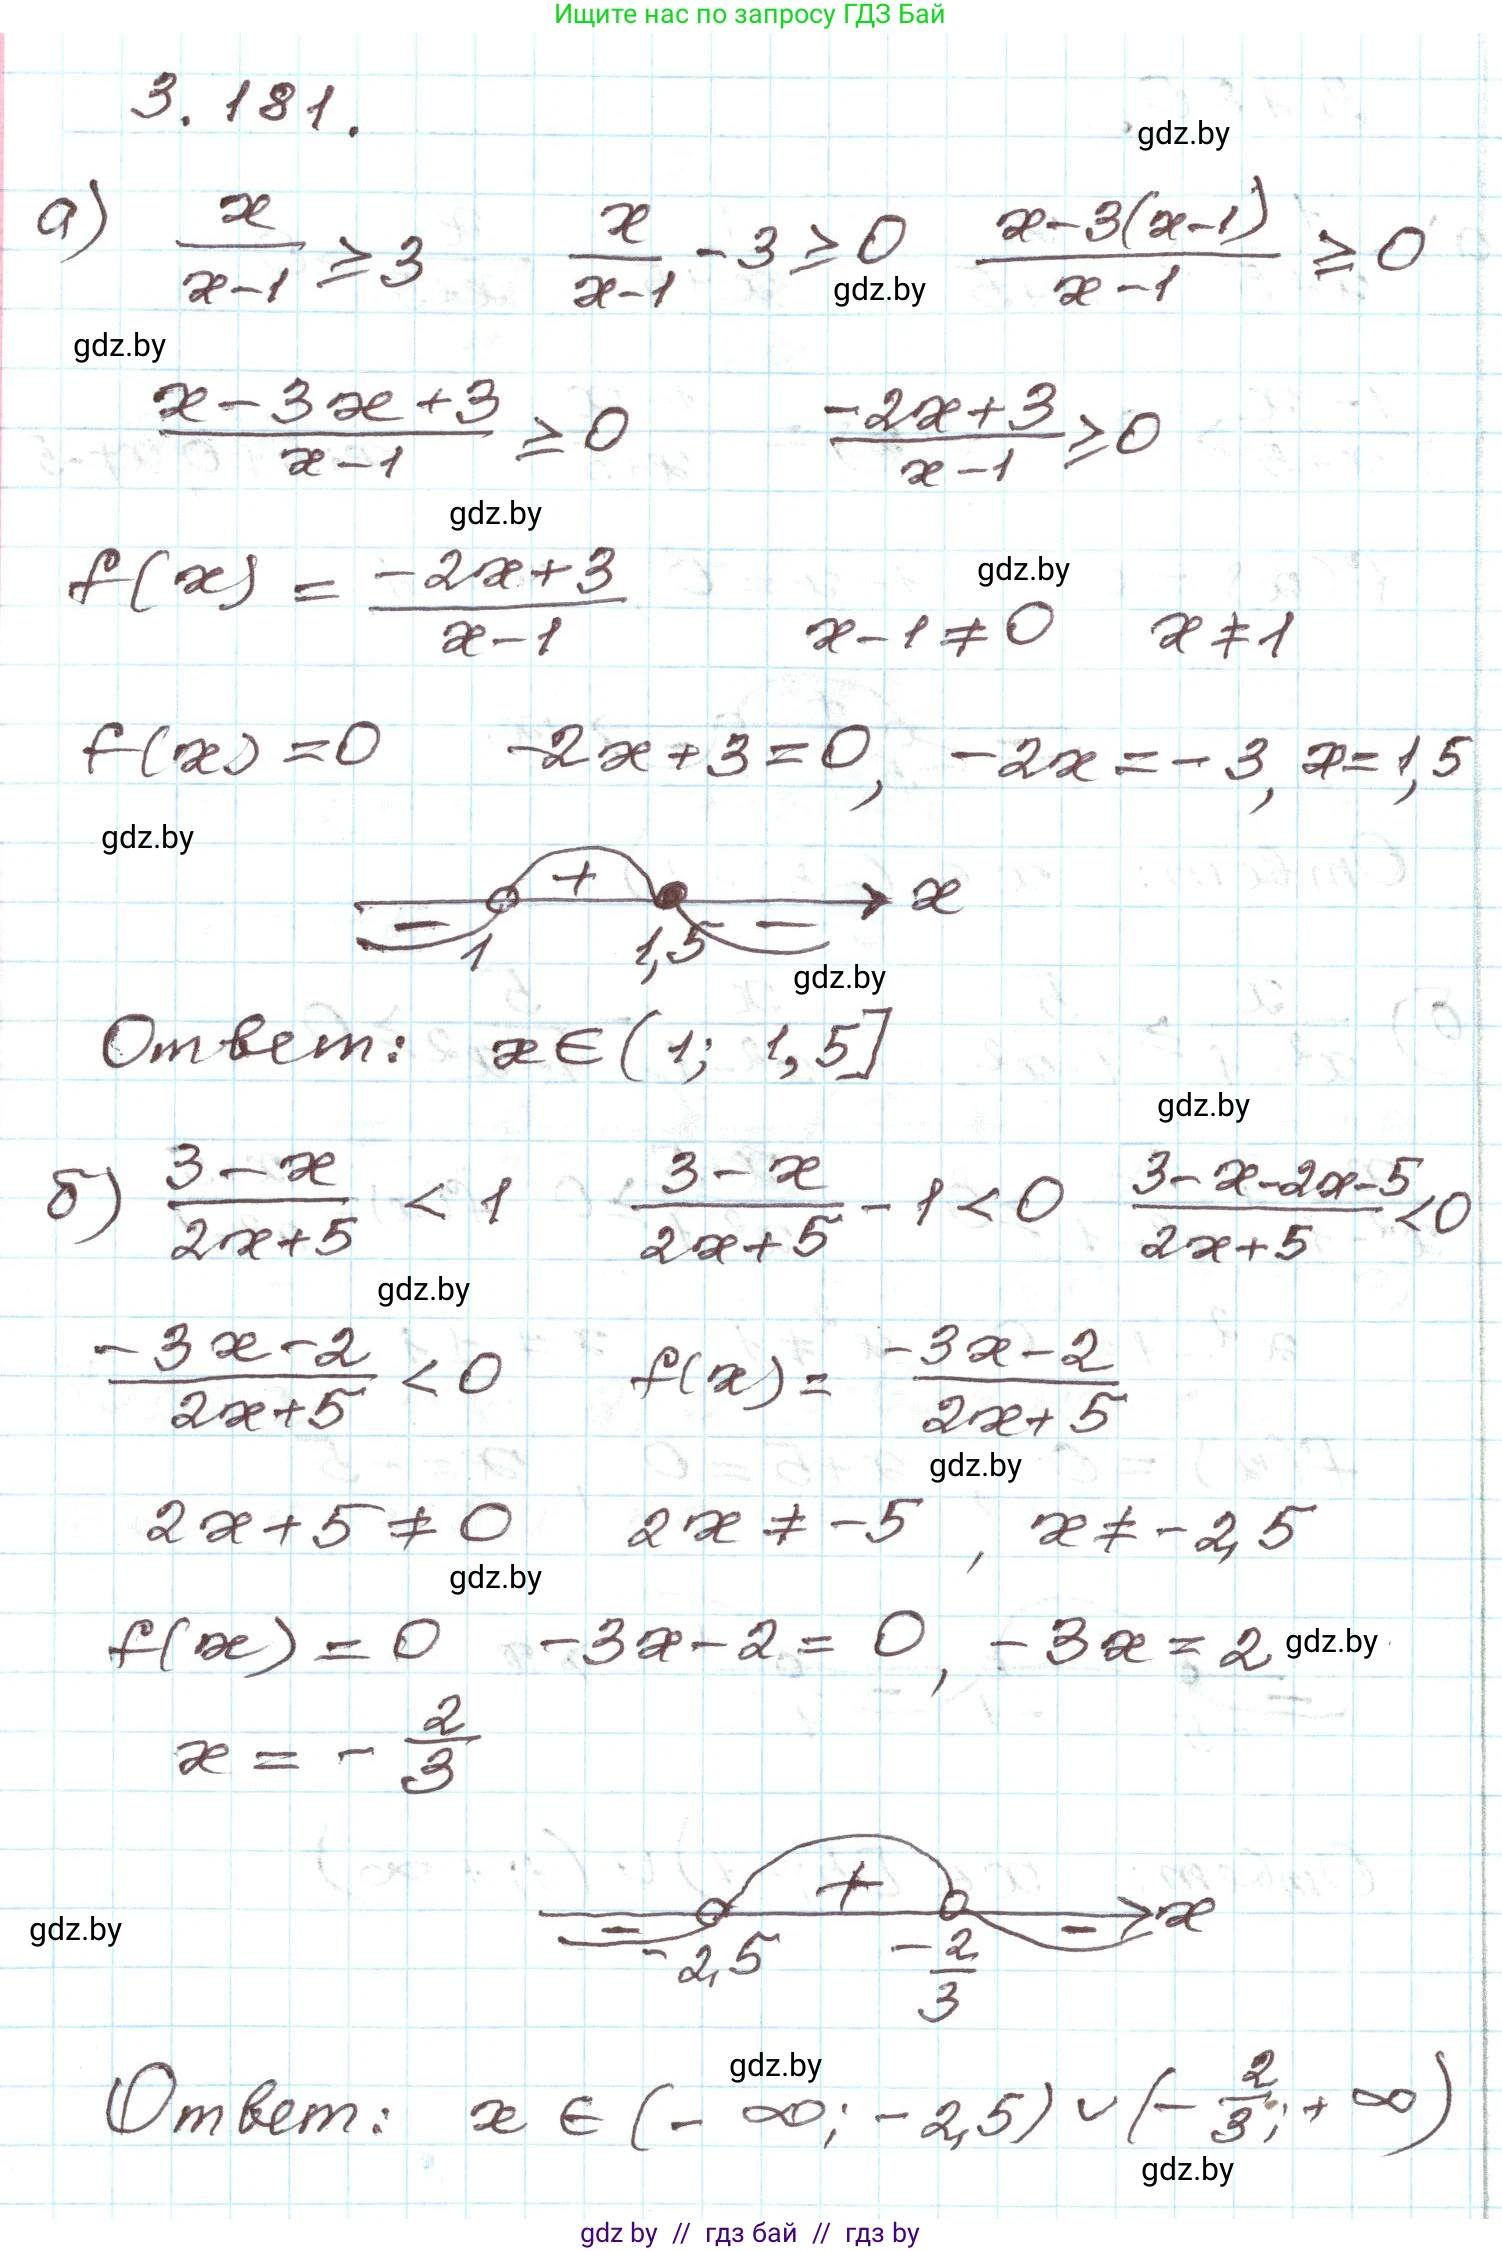 Ищите нас по запросу ГДЗ Бай
3.181.
gdz.by
а) x/(x-1) ≥ 3   x/(x-1) - 3 ≥ 0   (x-3(x-1))/(x-1) ≥ 0
gdz.by
gdz.by
(x-3x+3)/(x-1) ≥ 0   (-2x+3)/(x-1) ≥ 0
gdz.by
f(x) = (-2x+3)/(x-1)   x-1≠0   x≠1
gdz.by
f(x)=0   -2x+3=0, -2x=-3, x=1,5
gdz.by
- + - x
1 1,5
gdz.by
Ответ: x∈(1; 1,5]
gdz.by
б) (3-x)/(2x+5) < 1   (3-x)/(2x+5) - 1 < 0   (3-x-2x-5)/(2x+5) < 0
gdz.by
(-3x-2)/(2x+5) < 0   f(x) = (-3x-2)/(2x+5)
gdz.by
2x+5≠0   2x≠-5, x≠-2,5
gdz.by
f(x)=0   -3x-2=0, -3x=2
gdz.by
x = -2/3
- + - x
gdz.by
-2,5 -2/3
gdz.by
Ответ: x∈(-∞; -2,5)∪(-2/3; +∞)
gdz.by
gdz by // гдз бай // гдз by